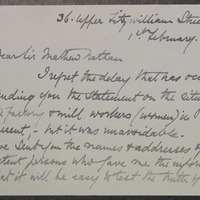 36. Upper Fitzwilliam Stree
1st February.
Dear Sir Mathew Nathan
I regret the delay that has oc
ending you the statement on the situ
factory & mill workers (women) in
resent, - but it was unavoidable.
ve sent you the names & addresses of
tent persons who gave me the infor
at it will be easy to test the truth of